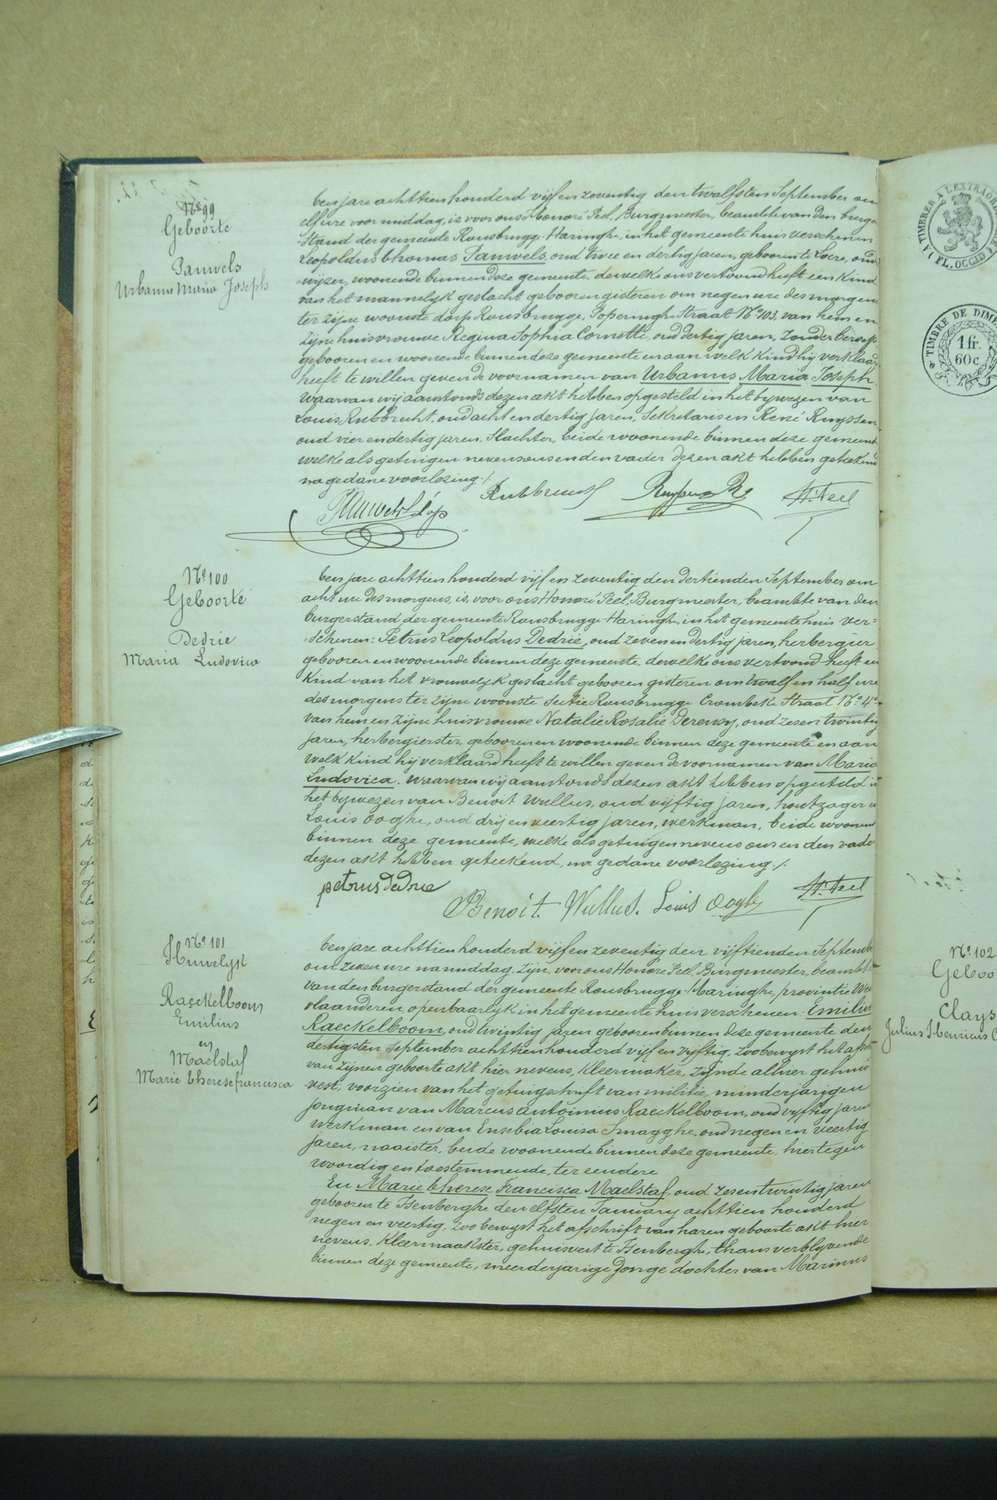 Nº 99
Geboorte
Pauwels
Urbanus Maria Joseph
ten jare achttien honderd vijf en zeventig den twalfsten September om
elf ure voor middag, is voor ons Honoré Feel, Burgmeester, beambte van den burger
stand der gemeente Rousbrugge Haringhe, in het gemeente huis verschenen
Leopoldus Thomas Pauwels, oud twee en dertig jaren, geboren te Locre, onder
wijzer, woonende binnen deze gemeente, dewelke ons vertoond heeft een kind
van het mannelijk geslacht geboren gisteren om negen ure des morgens
ter zijne woonste dorp Rousbrugge, Poperingh Straat Nº 103, van hem en
zijne huisvrouwe Regina Sophia Cornette, oud dertig jaren, zonder beroep
geboren en woonende binnen deze gemeente en aan welk kind hij verklaard
heeft te willen geven de voornamen van Urbanus Maria Joseph
waarvan wij aanstonds dezen akt hebben opgesteld in het bijwezen van
Louis Rubbrecht, oud acht en dertig jaren, Sekretaris en René Ruyssen
oud vier en dertig jaren, Slachter, beide woonende binnen deze gemeente
welke als getuigen nevens ons en den vader dezen akt hebben geteekend
na gedane voorlezing /.
Pauwels Lép
Rubbrecht
Ruyssen Re
H. Feel
Nº 100
Geboorte
Dedrie
Maria Ludovica
ten jare achttien honderd vijf en zeventig den dertienden September om
acht ure des morgens, is voor ons Honoré Feel, Burgmeester, beambte van den
burgerstand der gemeente Rousbrugge Haringh, in het gemeente huis ver-
schenen: Petrus Leopoldus Dedrie, oud zeven en dertig jaren, herbergier
geboren en woonende binnen deze gemeente, dewelke ons vertoond heeft een
kind van het vrouwelijk geslacht geboren gisteren om twalf en half ure
des morgens ter zijne woonste Sectie Rousbrugge Crombeke Straat Nº 4
van hem en zijne huisvrouwe Natalie Rosalie Derensy, oud zes en twintig
jaren, herbergierster, geboren en woonende binnen deze gemeente en aan
welk kind hij verklaard heeft te willen geven de voornamen van Maria
Ludovica. Waarvan wij aanstonds dezen akt hebben opgesteld in
het bijwezen van Benoit Wullus, oud vijftig jaren, houtzager en
Louis Ooghe, oud drij en veertig jaren, werkman, beide woonende
binnen deze gemeente, welke als getuigen nevens ons en den vader
dezen akt hebben geteekend, na gedane voorlezing /.
petrus dedrie
Benoit Wullus.
Louis Ooghe
H. Feel
Nº 101
Huwelijk
Raeckelboom
Emilius
en
Maelstaf
Marie Therese francisca
ten jare achttien honderd vijf en zeventig den vijftienden September
om zeven ure na middag, zijn, voor ons Honoré Feel, Burgmeester, beambte
van den burgerstand der gemeente Rousbrugge Haringhe, provintie West
vlaanderen, openbaarlijk in het gemeente huis verschenen: Emilius
Raeckelboom, oud twintig jaren, geboren binnen deze gemeente den
dertigsten September achttien honderd vijf en vijftig, zoo bewijst het afschrift
van zijnen geboorte akt hier nevens, kleermaker, zijnde alhier gehuis
vest, voorzien van het getuigschrift van militie, minderjarigen
jongman van Marcus Antoinus Raeckelboom, oud vijftig jaren
werkman en van Eusebia Louisa Smagghe, oud negen en veertig
jaren, naaister, beide woonende binnen deze gemeente, hier tegen
woordig en toestemmende, ter eendere
En Marie Therese Francisca Maelstaf, oud zes en twintig jaren
geboren te Isenberghe den elfsten January achttien honderd
negen en veertig, zoo bewijst het afschrift van haren geboorte akt hier
nevens, kleermaakster, gehuisvest te Isenbergh, thans verblijvende
binnen deze gemeente, meerderjarige jonge dochter van Marinus
A TIMBRER A L'EXTRAOR
( FL. OCCID
TIMBRE DE DIME
1 fr.
60 c.
Nº 102
Geboo
Clays
Julius Henricus C